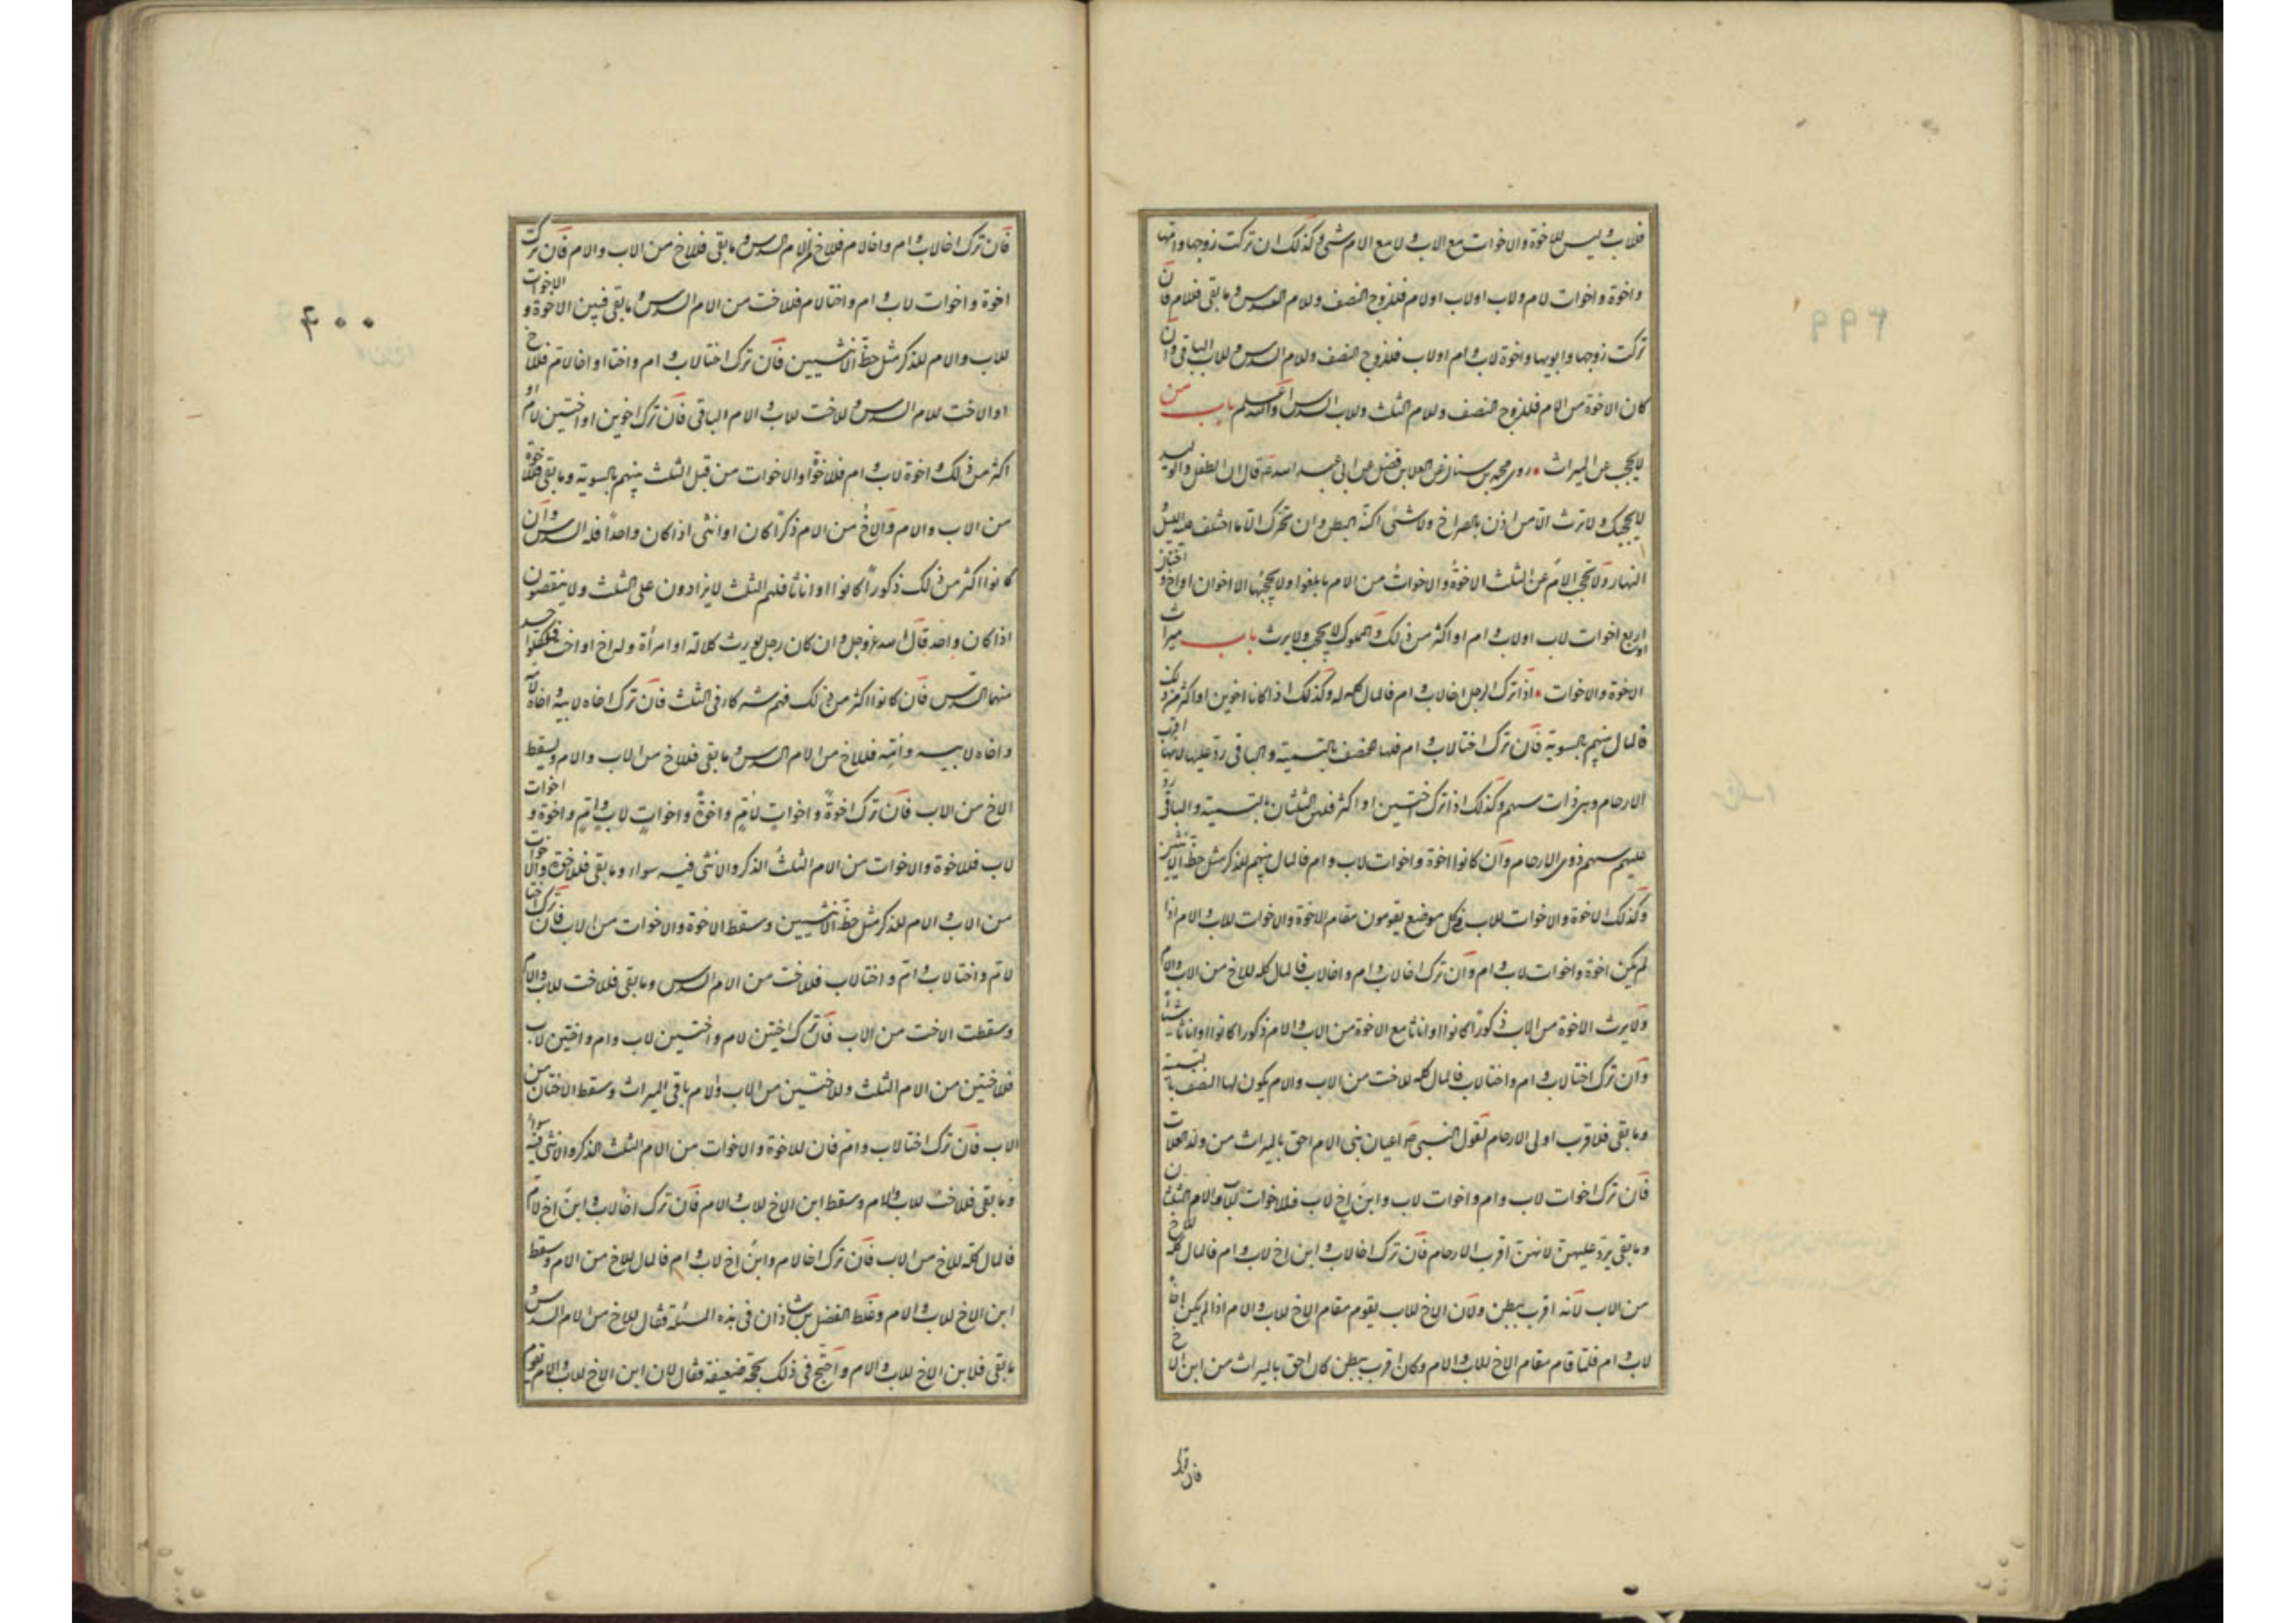 فللاب وليس للاخوة والاخوات مع الاب ولا مع الام شئ وكذلك ان تركت زوجها وامها
واخوة واخوات لام ولاب اولاب اولام فللزوج النصف وللام السدس وما بقى فللام فان
تركت زوجها وابويها واخوة لاب وام اولاب فللزوج النصف وللام السدس وللاب الباقى وان
كان الاخوة من الام فللزوج النصف وللام الثلث وللاب السدس والله اعلم باب من
لا يحجب عن الميراث روى محمد بن سنان عن العلا بن فضيل عن ابى عبد الله ع قال ان الطفل والوليد
لا يحجبك ولا يرث الا من اذن بالصراخ ولا شئ اكنه البطن وان تحرك الا ما اختلف عليه الليل و
النهار ولا يحجب الام عن الثلث الاخوة والاخوات من الام ما بلغوا ولا يحجبها الا اخوان او اخ واختان
او اربع اخوات لاب اولاب وام او اكثر من ذلك والمملوك لا يحجب ولا يرث باب ميراث
الاخوة والاخوات اذا ترك الرجل اخا لاب وام فالمال كله له وكذلك اذا كانا اخوين او اكثر من ذلك
فالمال بينهم بالسوية فان ترك اختا لاب وام فلها النصف بالتسمية والباقى رد عليها لانها اقرب
الارحام وهى ذات سهم وكذلك اذا ترك اختين او اكثر فلهن الثلثان بالتسمية والباقى رد
عليهم بسهم ذوى الارحام وان كانوا اخوة واخوات لاب وام فالمال بينهم للذكر مثل حظ الانثيين
وكذلك الاخوة والاخوات للاب فى كل موضع يقومون مقام الاخوة والاخوات للاب والام اذا
لم يكن اخوة واخوات لاب وام وان ترك اخا لاب وام واخا لاب فالمال كله للاخ من الاب والام
ولا يرث الاخوة من الاب ذكورا كانوا او اناثا مع الاخوة من الاب والام ذكورا كانوا او اناثا شيئا
وان ترك اختا لاب وام واختا لاب فالمال كله للاخت من الاب والام يكون لها النصف بالتسمية
وما بقى فلاقرب اولى الارحام لقول النبى ص اعيان بنى الام احق بالميراث من ولد العلات
فان ترك اخوات لاب وام واخوات لاب وابن اخ لاب فللاخوات للاب والام الثلثان
وما بقى يرد عليهن لانهن اقرب الارحام فان ترك اخا لاب وابن اخ لاب وام فالمال كله للاخ
من الاب لانه اقرب ببطن ولان الاخ للاب يقوم مقام الاخ للاب والام اذا لم يكن اخ
لاب وام فلما قام مقام الاخ للاب والام وكان اقرب ببطن كان احق بالميراث من ابن الاخ
فان ترك
٤٠٠
فان ترك اخا لاب وام واخا لام فللاخ للام السدس وما بقى فللاخ من الاب والام فان ترك
اخوة واخوات لاب وام واختا لام فللاخت من الام السدس وما بقى فبين الاخوة والاخوات
للاب والام للذكر مثل حظ الانثيين فان ترك اختا لاب وام واختا او اخا لام فللاخ
او الاخت للام السدس وللاخت للاب والام الباقى فان ترك اخوين او اختين لام او
اكثر من ذلك واخوة لاب وام فللاخوة او الاخوات من قبل الثلث بينهم بالسوية وما بقى فللاخوة
من الاب والام والاخ من الام ذكرا كان او انثى اذا كان واحدا فله السدس وان
كانوا اكثر من ذلك ذكورا كانوا او اناثا فلهم الثلث لا يزادون على الثلث ولا ينقصون
اذا كان واحد قال الله عز وجل وان كان رجل يورث كلالة او امرأة وله اخ او اخت فلكل واحد
منهما السدس فان كانوا اكثر من ذلك فهم شركاء فى الثلث فان ترك اخاه لابيه واخاه لامه
واخاه لابيه وامه فللاخ من الام السدس وما بقى فللاخ من الاب والام ويسقط
الاخ من الاب فان ترك اخوة واخوات لام واخوة واخوات لاب وام واخوة واخوات
لاب فللاخوة والاخوات من الام الثلث الذكر والانثى فيه سواء وما بقى فللاخوة والاخوات
من الاب والام للذكر مثل حظ الانثيين وسقط الاخوة والاخوات من الاب فان ترك اختا
لام واختا لاب وام واختا لاب فللاخت من الام السدس وما بقى فللاخت للاب والام
وسقطت الاخت من الاب فان ترك اختين لام واختين لاب وام واختين لاب
فللاختين من الام الثلث وللاختين من الاب والام باقى الميراث وسقط الاختان من
الاب فان ترك اختا لاب وام فان للاخوة والاخوات من الام الثلث الذكر والانثى فيه سواء
وما بقى فللاخت للاب والام وسقط ابن الاخ للاب والام فان ترك اخا لاب وابن اخ لام
فالمال كله للاخ من الاب فان ترك اخا لام وابن اخ لاب وام فالمال للاخ من الام وسقط
ابن الاخ للاب والام وغلط الفضل بن شاذان فى هذه المسئلة فقال للاخ من الام السدس و
ما بقى فلابن الاخ للاب والام واحتج فى ذلك بحجة ضعيفة فقال لان ابن الاخ للاب والام يقوم